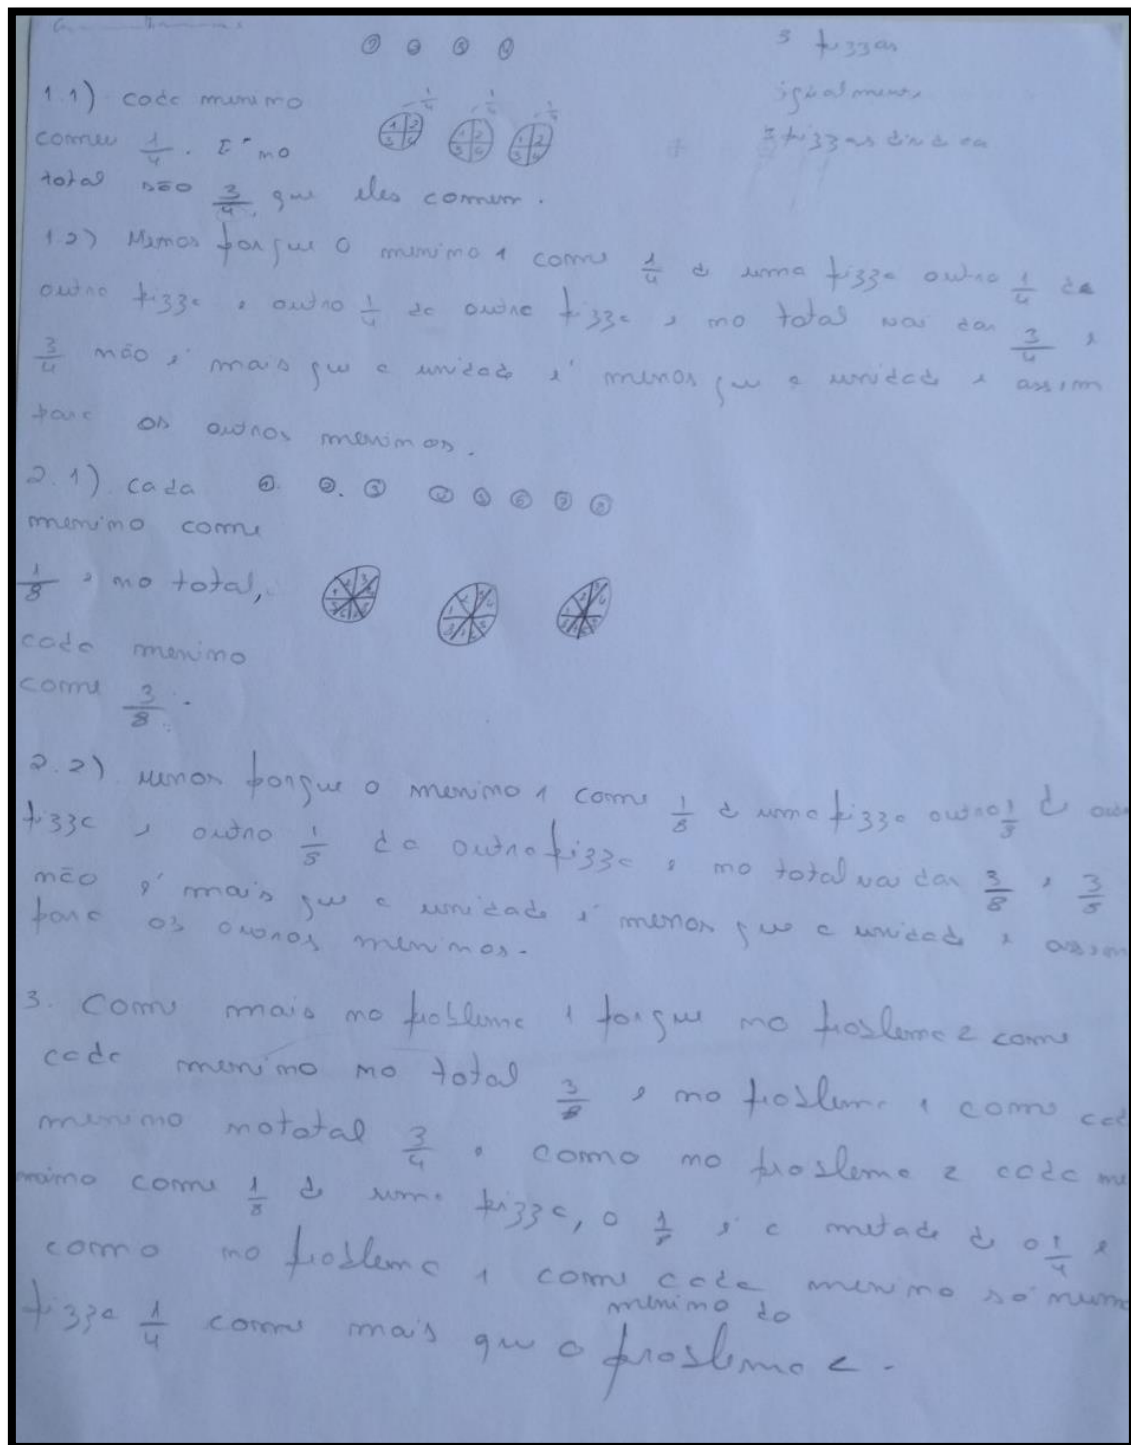 3 pizzas
igualmente
1 2 3 4
1.1) cada menino
comeu 1/4. E no
total são 3/4 que eles comem.
1/4 1/4 1/4
1 2 3 4
1 2 3 4
1 2 3 4
3 pizzas
1.2) Menos porque o menino 1 come 1/4 de uma pizza outro 1/4 de
outra pizza e outro 1/4 da outra pizza e no total vai dar 3/4 e
3/4 não é mais que a unidade é menos que a unidade e assim
para os outros meninos.
2.1) cada
menino come
1/8 e no total,
cada menino
come 3/8.
1 2 3 4 5 6 7 8
2.2) menos porque o menino 1 come 1/8 de uma pizza outro 1/8 de
pizza e outro 1/8 da outra pizza e no total vai dar 3/8 e 3/8
não é mais que a unidade é menos que a unidade e assim
para os outros meninos.
3. Come mais no problema 1 porque no problema 2 come
cada menino no total 3/8 e no problema 1 come
menino no total 3/4. como no problema 2 cada me
nino come 1/8 de uma pizza, o 1/8 é a metade de o 1/4 e
como no problema 1 come cada menino só numa
pizza 1/4 come mais que o menino do problema 2.